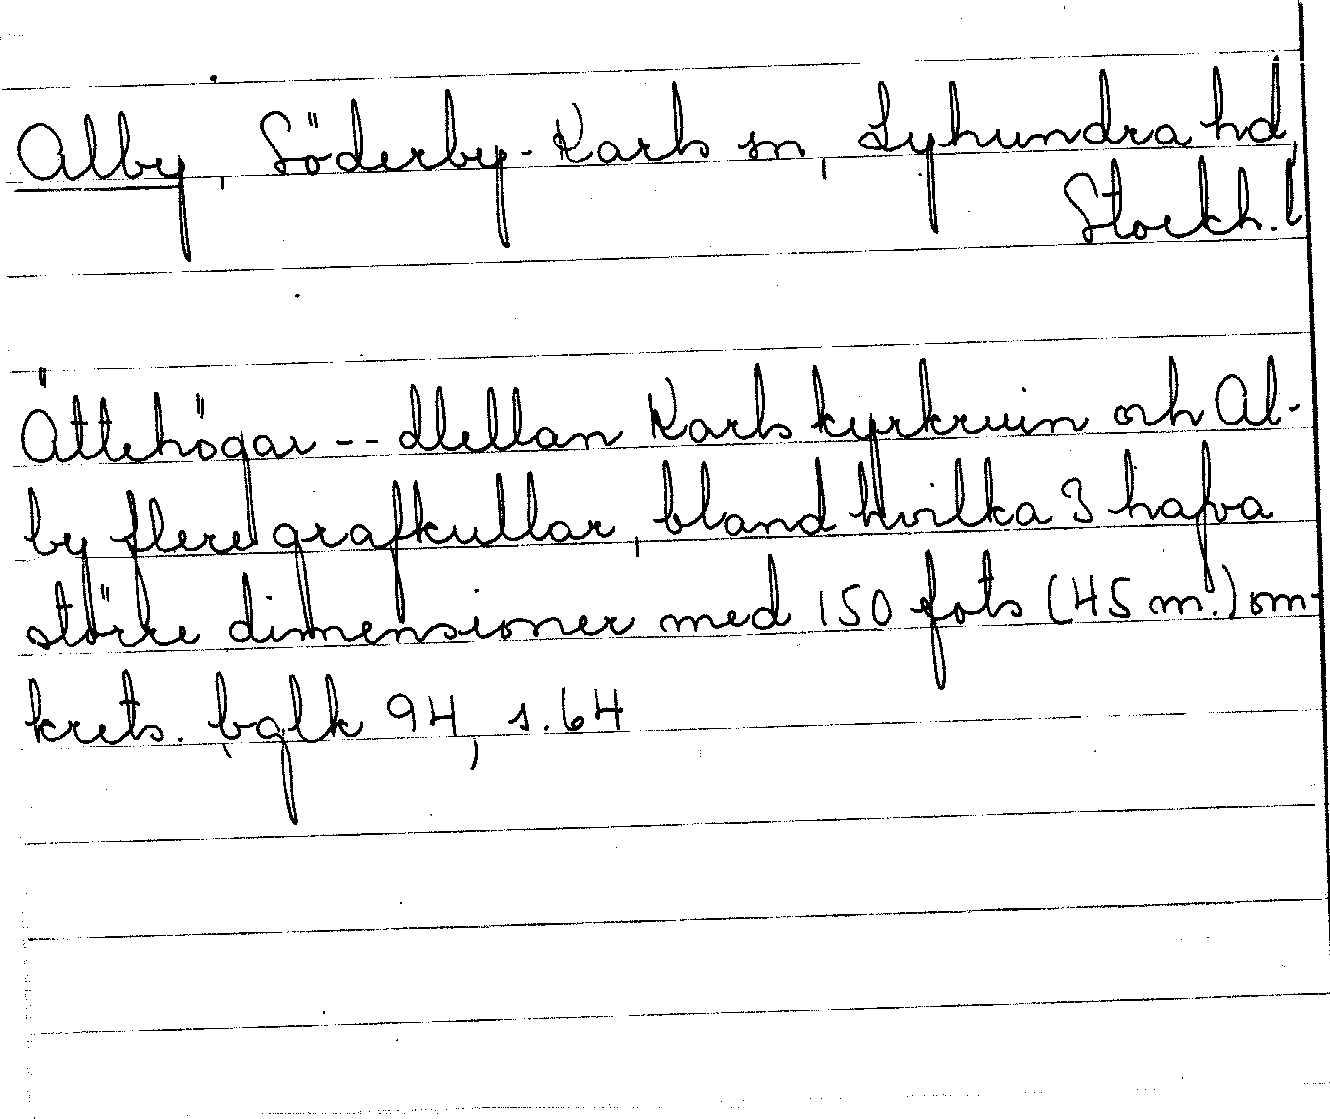 Alby, Söderby-Karls sn, Lyhundra hd,
Stockh. l
Ättehögar -- Mellan Karls kyrkruin och Al-
by flere grafkullar, bland hvilka 3 hafva
större dimensioner med 150 fots (45 m.) om-
krets. bglk 94, s. 64